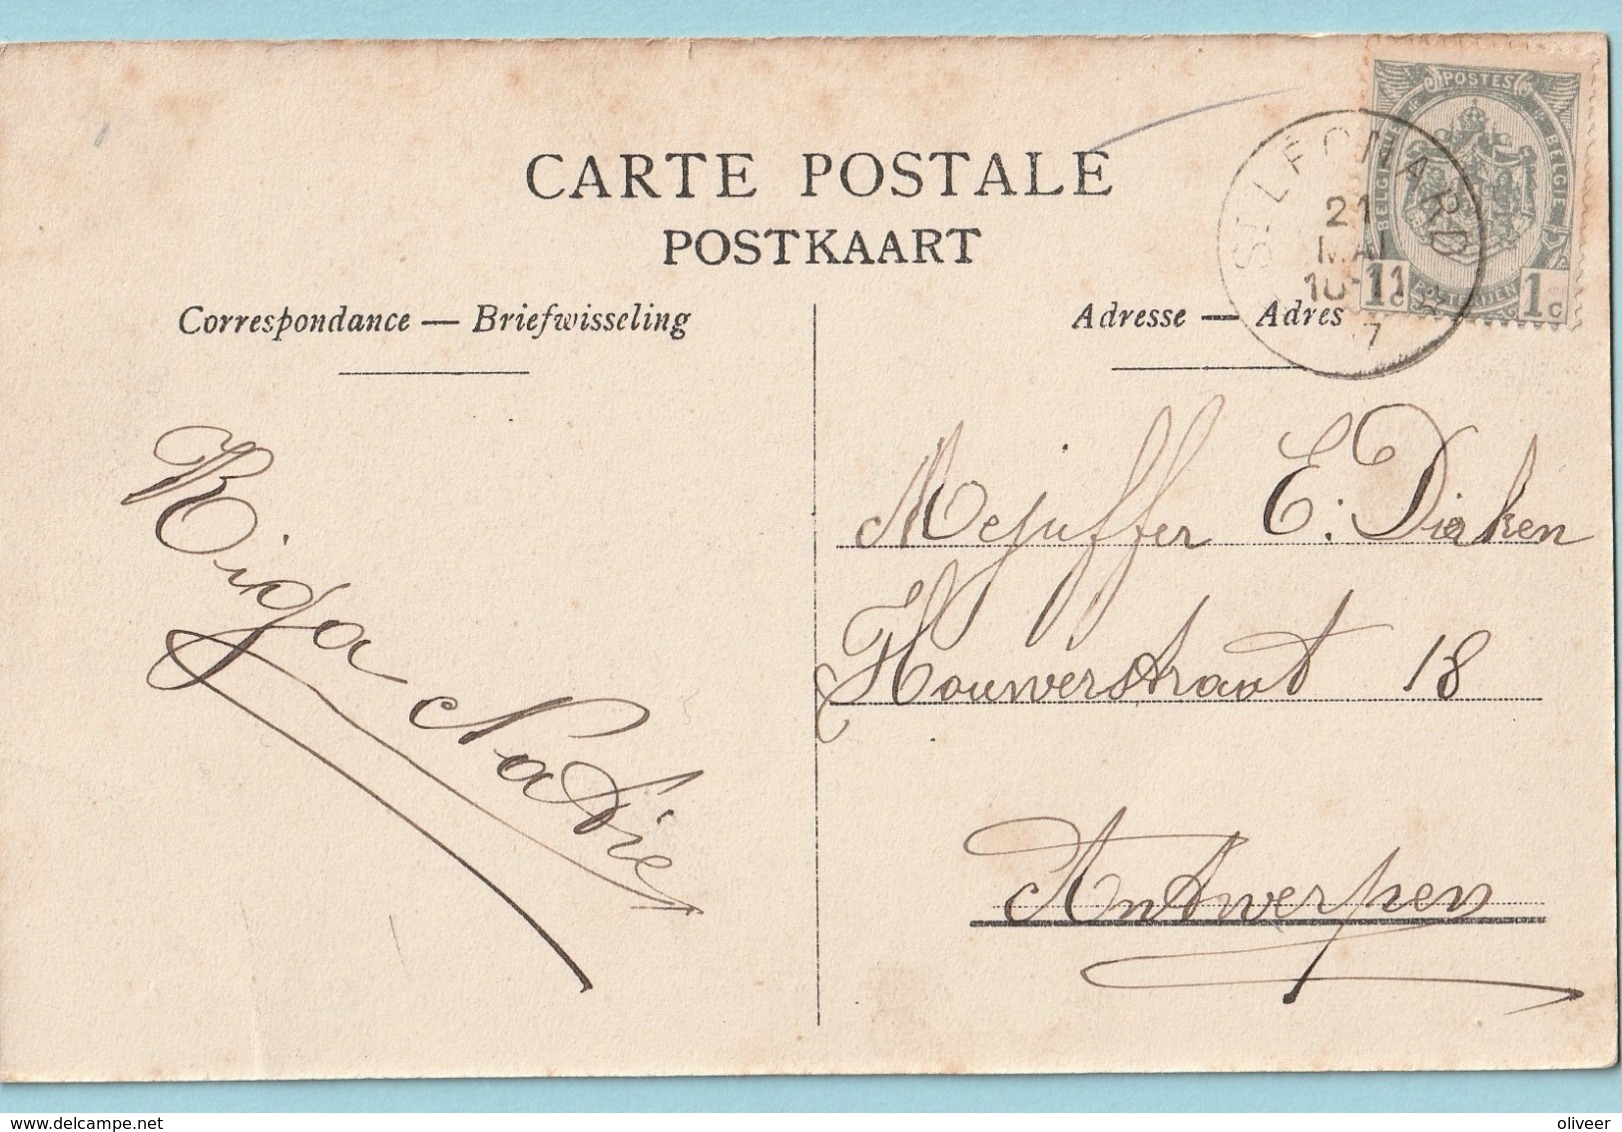 CARTE POSTALE
POSTKAART
Correspondance — Briefwisseling
Adresse — Adres
POSTES
BELGIQUE BELGIË
POSTERIJEN
1c 1c
ST LEONARD
21
MAI
10-11
7
Mejuffer E. Dierken
Houwerstraat 18
Antwerpen
Riga
delcampe.net
oliveer